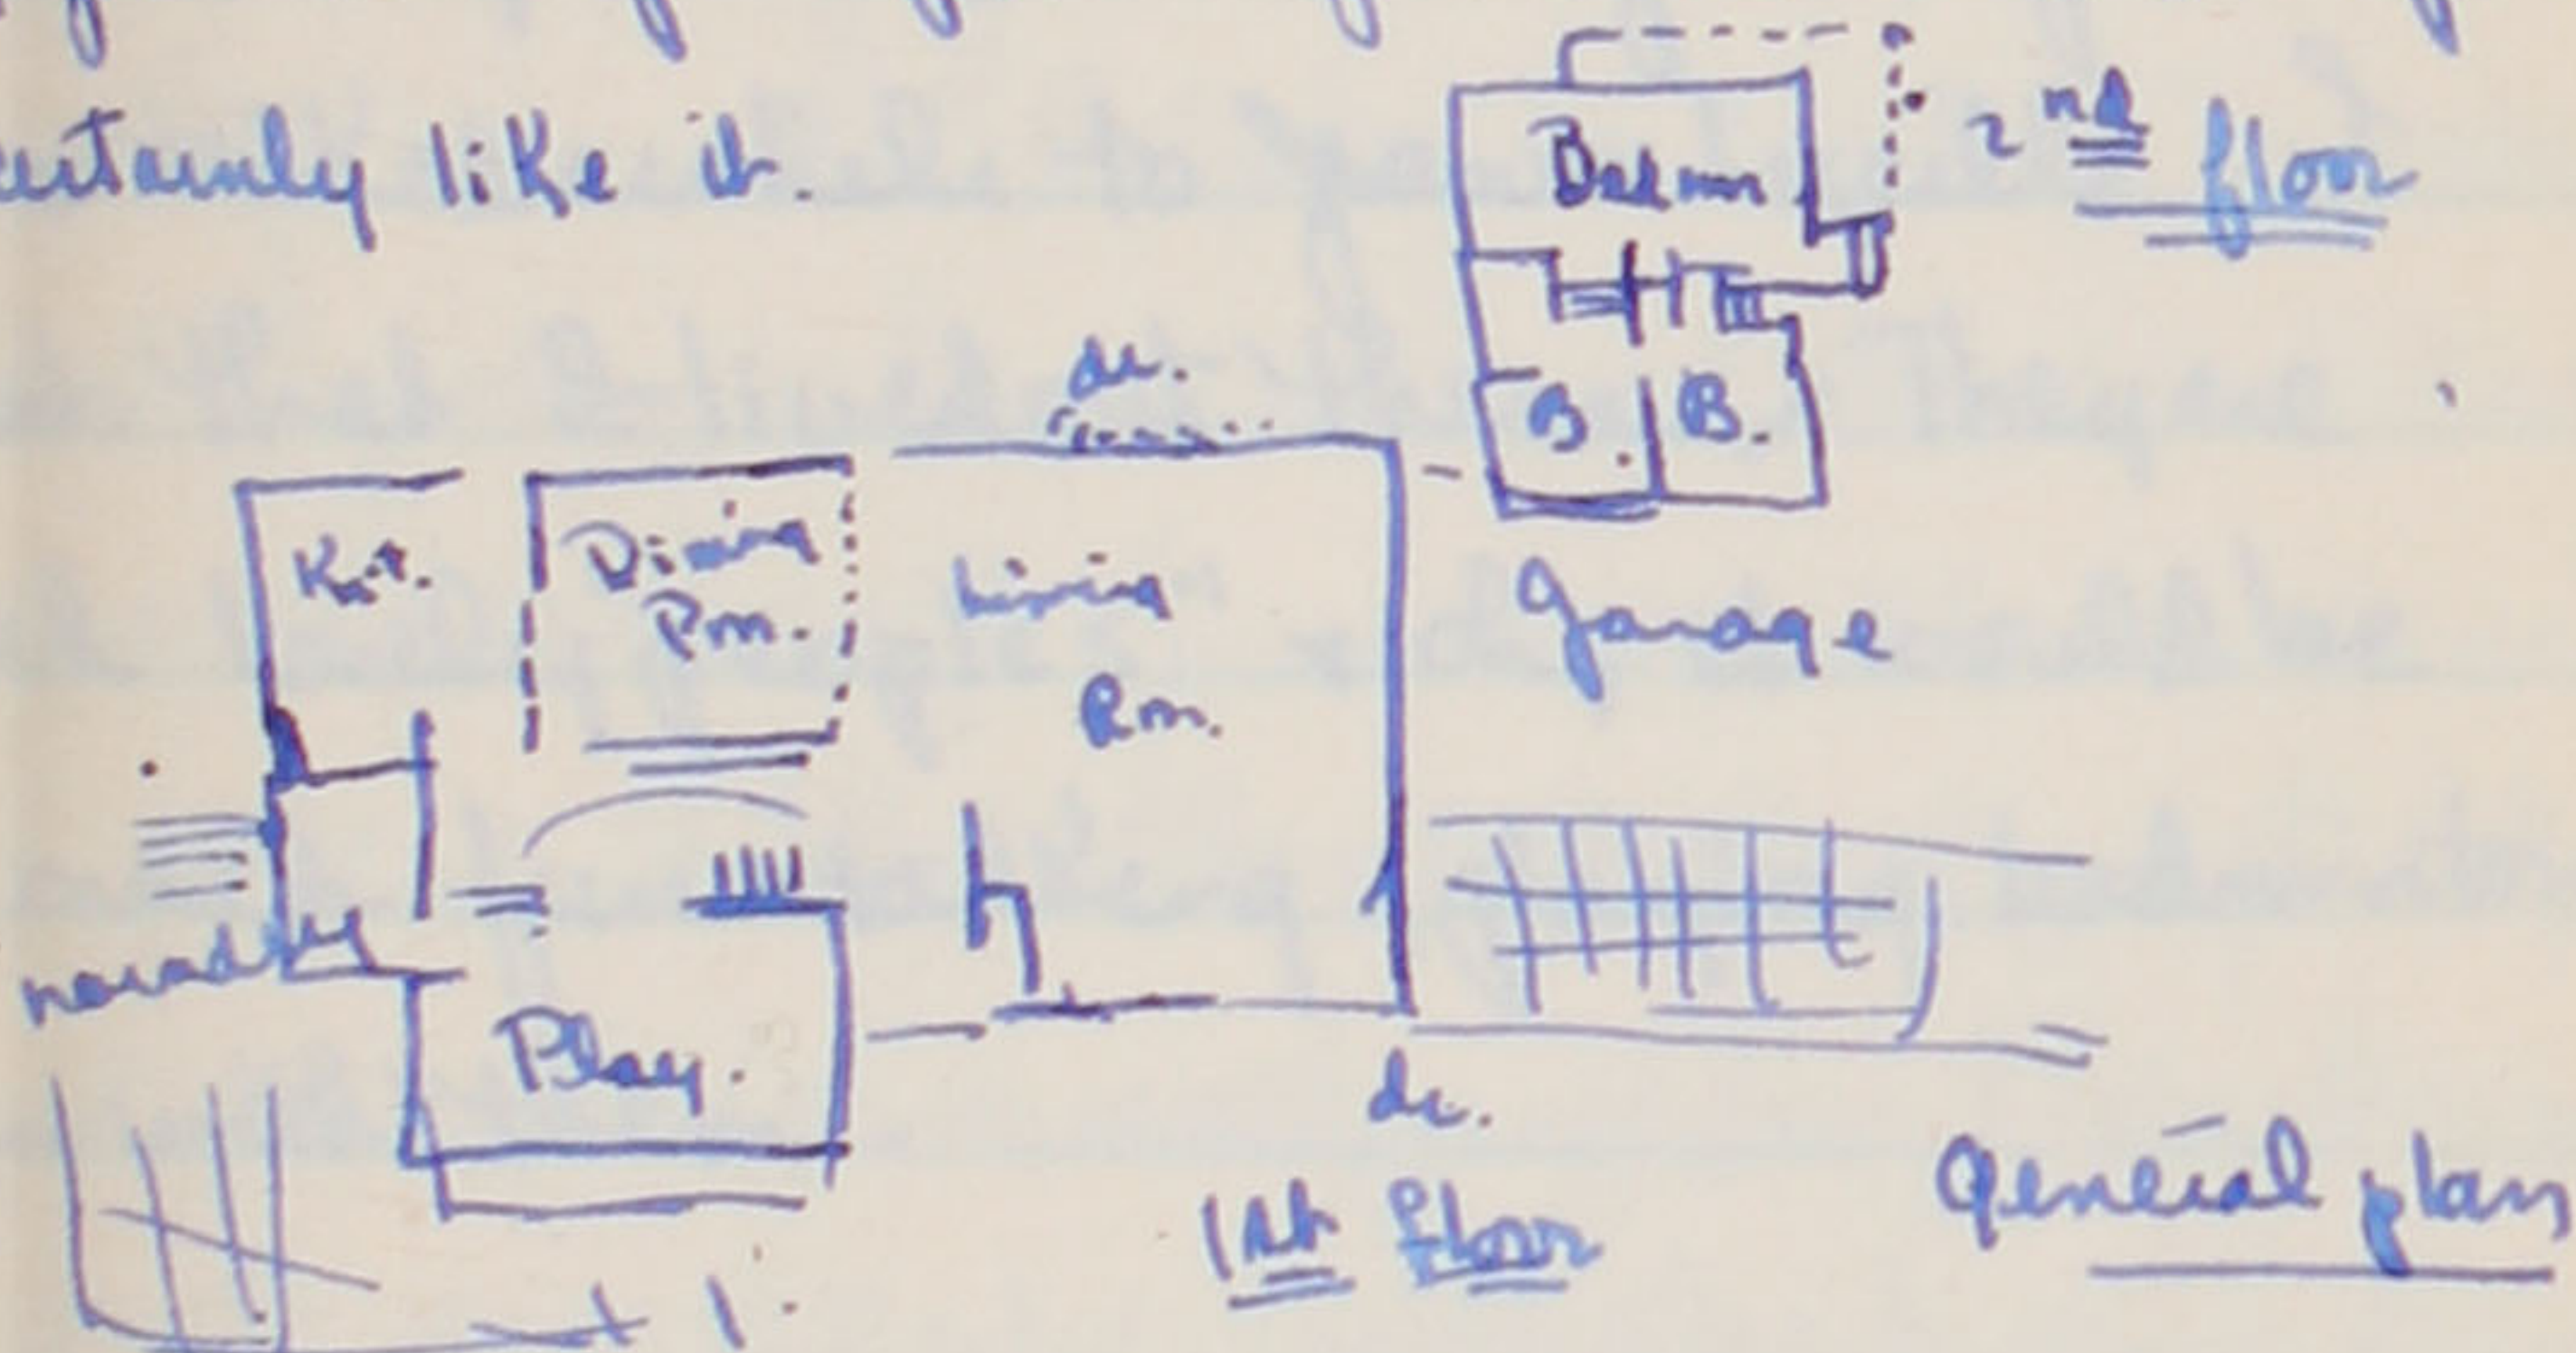 certainly like it.
2nd floor
Bedroom
B. B.
Kit.
Dining
Rm.
Living
Rm.
Garage
Play.
1st floor
General plan